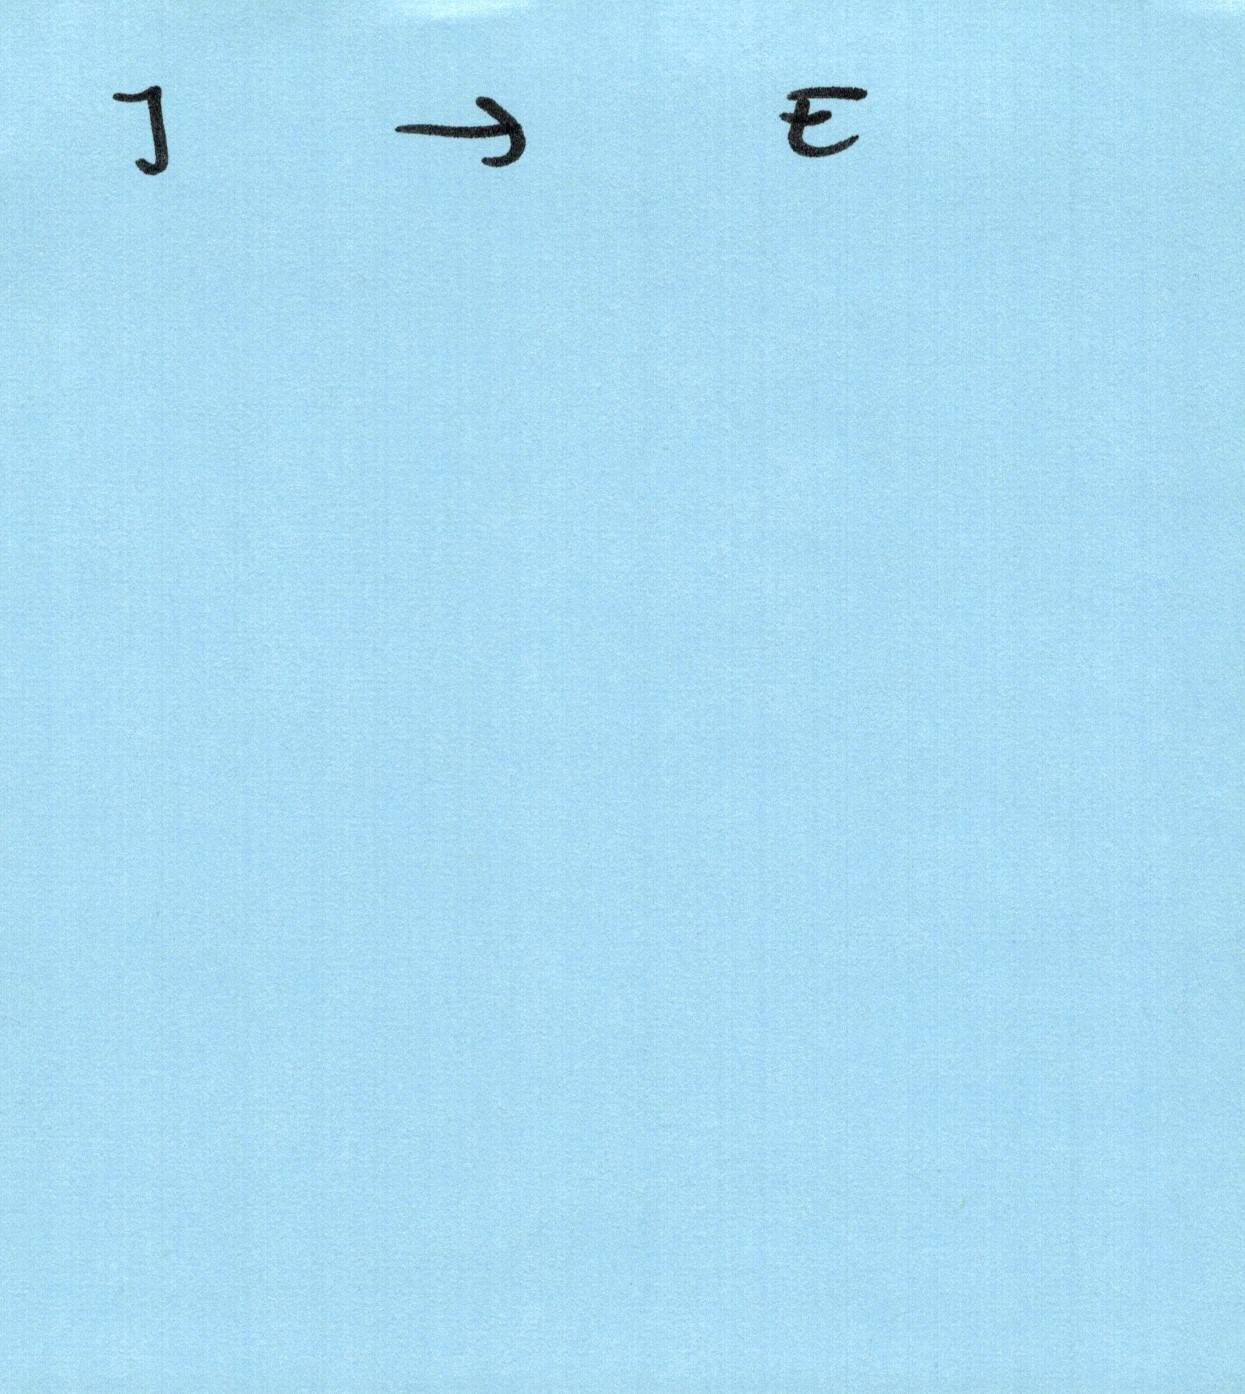 J → E